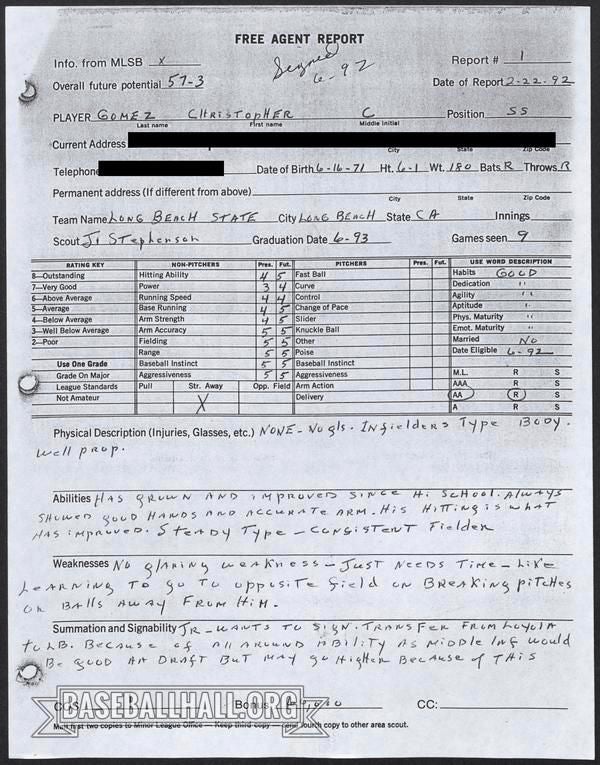 FREE AGENT REPORT
Signed
6-92
Info. from MLSB X Report # 1
Overall future potential 57-3 Date of Report 2-22-92
PLAYER GOMEZ CHRISTOPHER C Position SS
Last name First name Middle Initial
Current Address
City State Zip Code
Telephone Date of Birth 6-16-71 Ht. 6-1 Wt. 180 Bats R Throws R
Permanent address (If different from above)
City State Zip Code
Team Name LONG BEACH STATE City LONG BEACH State CA Innings
Scout J. Stephenson Graduation Date 6-93 Games seen 9
RATING KEY NON-PITCHERS Pres. Fut. PITCHERS Pres. Fut. USE WORD DESCRIPTION
8—Outstanding Hitting Ability 4 5 Fast Ball Habits GOOD
7—Very Good Power 3 4 Curve Dedication "
6—Above Average Running Speed 4 4 Control Agility "
5—Average Base Running 4 5 Change of Pace Aptitude "
4—Below Average Arm Strength 4 5 Slider Phys. Maturity "
3—Well Below Average Arm Accuracy 5 5 Knuckle Ball Emot. Maturity "
2—Poor Fielding 5 5 Other Married No
Range 5 5 Poise Date Eligible 6-92
Use One Grade Baseball Instinct 5 5 Baseball Instinct
Grade On Major Aggressiveness 5 5 Aggressiveness M.L. R S
League Standards Pull Str. Away Opp. Field Arm Action AAA R S
Not Amateur X Delivery AA R S
A R S
Physical Description (Injuries, Glasses, etc.) NONE - No gls. Infielders Type Body.
Well prop.
Abilities HAS GROWN AND IMPROVED SINCE Hi SCHOOL. ALWAYS
SHOWED GOOD HANDS AND ACCURATE ARM. HIS HITTING is WHAT
HAS IMPROVED. STEADY TYPE - CONSISTENT FIELDER
Weaknesses NO glaring weakness - JUST NEEDS TIME - LIKE
LEARNING TO go TO opposite field on BREAKING pitches
OR BALLS AWAY FROM HIM.
Summation and Signability JR - WANTS TO SIGN. TRANSFER FROM LOYOLA
TO LB. BECAUSE of All AROUND ABILITY AS MIDDLE INF would
BE GOOD AA DRAFT BUT MAY go HigHER BECAUSE of THIS
Bonus CC:
BASEBALLHALL.ORG
Mail first two copies to Minor League Office — Keep third copy — send fourth copy to other area scout.